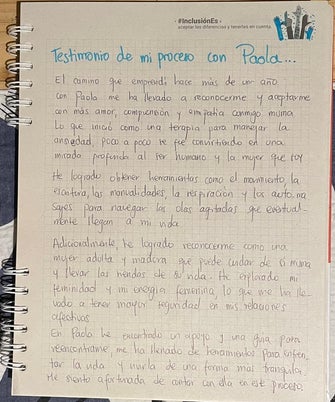 · #InclusiónEs ·
aceptar las diferencias y tenerlas en cuenta
Testimonio de mi proceso con Paola...
El camino que emprendí hace más de un año
con Paola me ha llevado a reconocerme y aceptarme
con más amor, comprensión y empatía conmigo misma
Lo que inició como una terapia para manejar la
ansiedad, poco a poco se fue convirtiendo en una
mirada profunda al ser humano y la mujer que soy
He logrado obtener herramientas como el movimiento, la
escritura, las manualidades, la respiración y los automa
sajes para navegar las olas agitadas que eventual-
mente llegan a mi vida
Adicionalmente, he logrado reconocerme como una
mujer adulta y madura que puede cuidar de si misma
y llevar las riendas de su vida. He explorado mi
feminidad y mi energía femenina, lo que me ha lle-
vado a tener mayor seguridad en mis relaciones
afectivas
En Paola he encontrado un apoyo y una guía para
reencontrarme, me ha llenado de herramientas para enfren
tar la vida y vivirla de una forma más tranquila.
Me siento afortunada de contar con ella en este proceso.